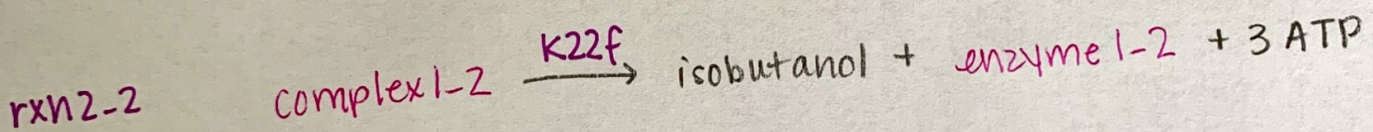 rxn2-2 complex1-2 K22f → isobutanol + enzyme1-2 + 3 ATP